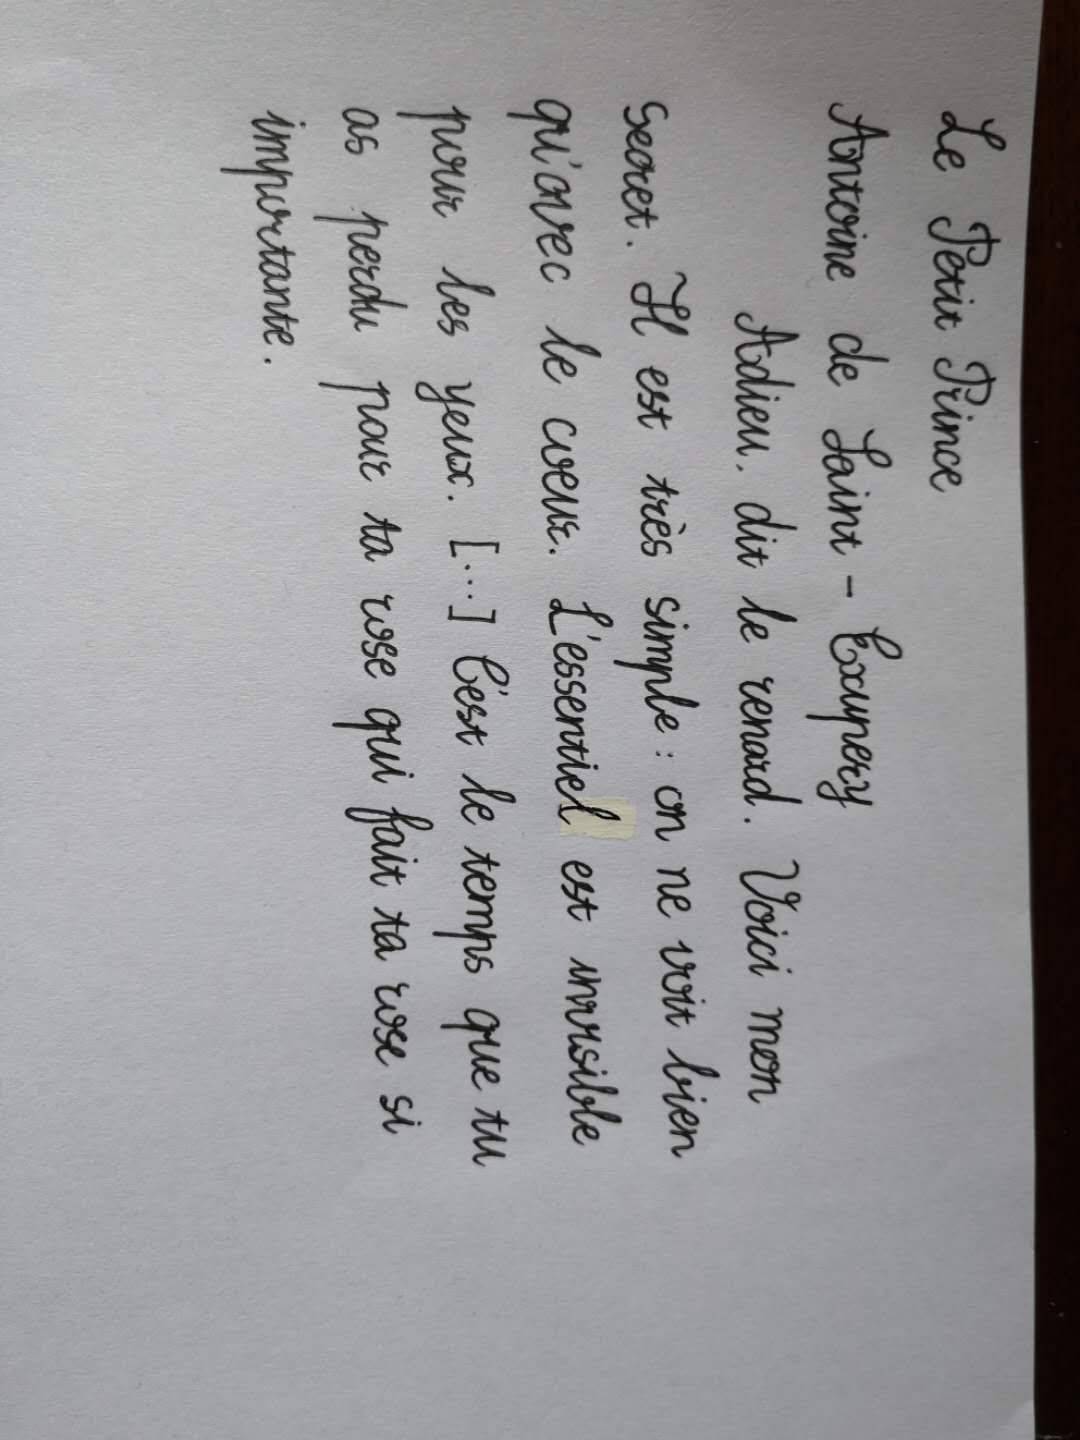 Le Petit Prince
Antoine de Saint-Exupery
Adieu, dit le renard. Voici mon
secret. Il est très simple: on ne voit bien
qu'avec le coeur. L'essentiel est invisible
pour les yeux. [...] C'est le temps que tu
as perdu pour ta rose qui fait ta rose si
importante.